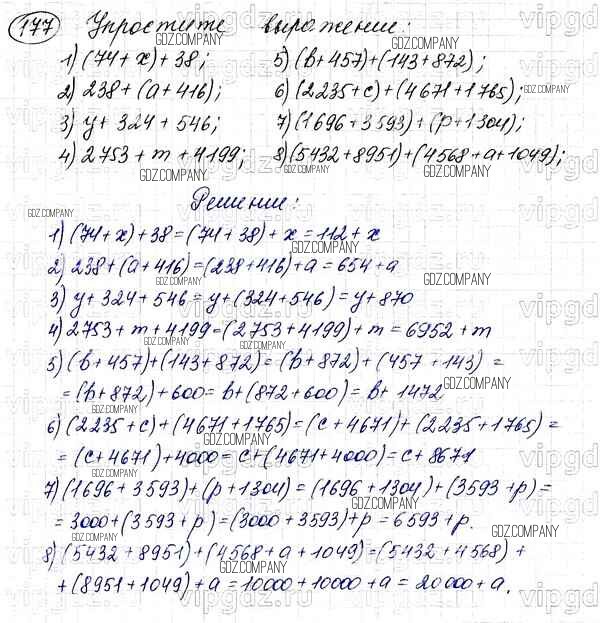 177 Упростите выражение:
1) (74 + x) + 38; 5) (b + 457) + (143 + 872);
2) 238 + (a + 416); 6) (2235 + c) + (4671 + 1765);
3) y + 324 + 546; 7) (1696 + 3593) + (p + 1304);
4) 2753 + m + 4199; 8) (5432 + 8951) + (4568 + a + 1049);
Решение:
1) (74 + x) + 38 = (74 + 38) + x = 112 + x
2) 238 + (a + 416) = (238 + 416) + a = 654 + a
3) y + 324 + 546 = y + (324 + 546) = y + 870
4) 2753 + m + 4199 = (2753 + 4199) + m = 6952 + m
5) (b + 457) + (143 + 872) = (b + 872) + (457 + 143) =
= (b + 872) + 600 = b + (872 + 600) = b + 1472
6) (2235 + c) + (4671 + 1765) = (c + 4671) + (2235 + 1765) =
= (c + 4671) + 4000 = c + (4671 + 4000) = c + 8671
7) (1696 + 3593) + (p + 1304) = (1696 + 1304) + (3593 + p) =
= 3000 + (3593 + p) = (3000 + 3593) + p = 6593 + p.
8) (5432 + 8951) + (4568 + a + 1049) = (5432 + 4568) +
+ (8951 + 1049) + a = 10000 + 10000 + a = 20000 + a.